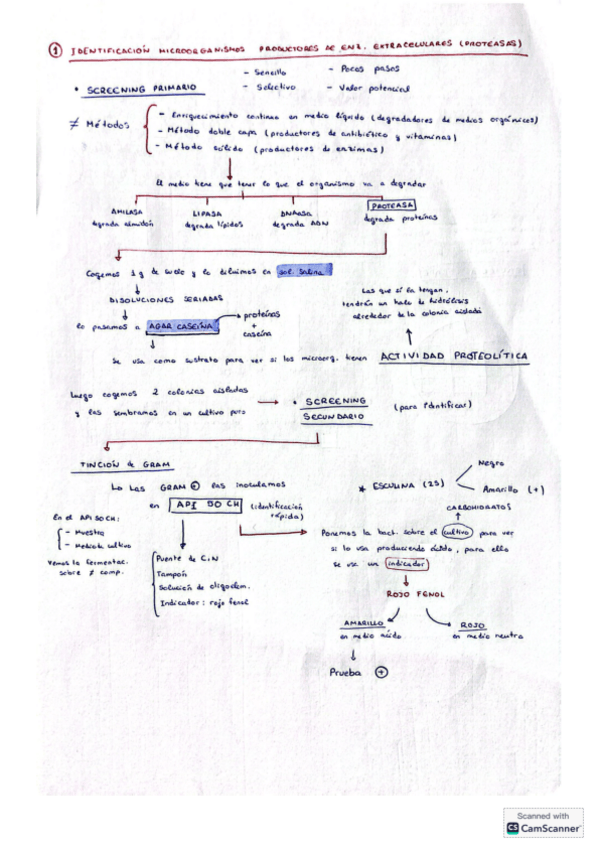 ① IDENTIFICACIÓN MICROORGANISMOS PRODUCTORES DE ENZ. EXTRACELULARES (PROTEASAS)
• SCREENING PRIMARIO
- Sencillo
- Pocos pasos
- Selectivo
- Valor potencial
≠ Métodos
- Enriquecimiento continuo en medio líquido (degradadores de medios orgánicos)
- Método doble capa (productores de antibiótico y vitaminas)
- Método sólido (productores de enzimas)
El medio tiene que tener lo que el organismo va a degradar
AMILASA
degrada almidón
LIPASA
degrada lípidos
DNAASA
degrada ADN
PROTEASA
degrada proteínas
Cogemos 1 g de suelo y lo diluimos en sol. salina
DISOLUCIONES SERIADAS
lo pasamos a AGAR CASEINA
proteínas
+
caseína
Las que sí la tengan,
tendrán un halo de hidrólisis
alrededor de la colonia aislada
Se usa como sustrato para ver si los microorg. tienen ACTIVIDAD PROTEOLÍTICA
Luego cogemos 2 colonias aisladas
y las sembramos en un cultivo puro
• SCREENING
SECUNDARIO
(para identificar)
TINCIÓN de GRAM
Lo Las GRAM ⊕ las inoculamos
en API 50 CH (identificación
rápida)
* ESCULINA (25)
Negro
Amarillo (+)
CARBOHIDRATOS
En el API 50 CH:
- Muestra
- Medio de cultivo
Vemos la fermentac.
sobre ≠ comp.
Fuente de C, N
Tampón
Solución de oligoelem.
Indicador: rojo fenol
Ponemos la bact. sobre el cultivo para ver
si lo usa produciendo ácido, para ello
se usa un indicador
ROJO FENOL
AMARILLO
en medio ácido
ROJO
en medio neutro
Prueba ⊕
Scanned with
CS CamScanner